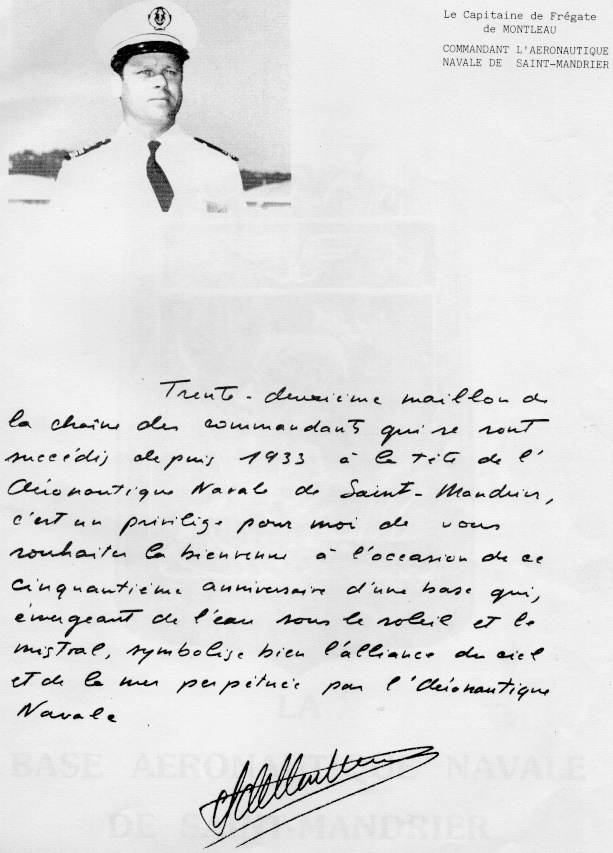 Le Capitaine de Frégate
de MONTLEAU
COMMANDANT L'AERONAUTIQUE
NAVALE DE SAINT-MANDRIER
Trente-deuxième maillon de
la chaîne des commandants qui se sont
succédés depuis 1933 à la tête de l'
Aéronautique Navale de Saint-Mandrier,
c'est un privilège pour moi de vous
souhaiter la bienvenue à l'occasion de ce
cinquantième anniversaire d'une base qui,
émergeant de l'eau sous le soleil et le
mistral, symbolise bien l'alliance du ciel
et de la mer perpétuée par l'Aéronautique
Navale
LA
BASE AERONAUTIQUE NAVALE
DE SAINT-MANDRIER